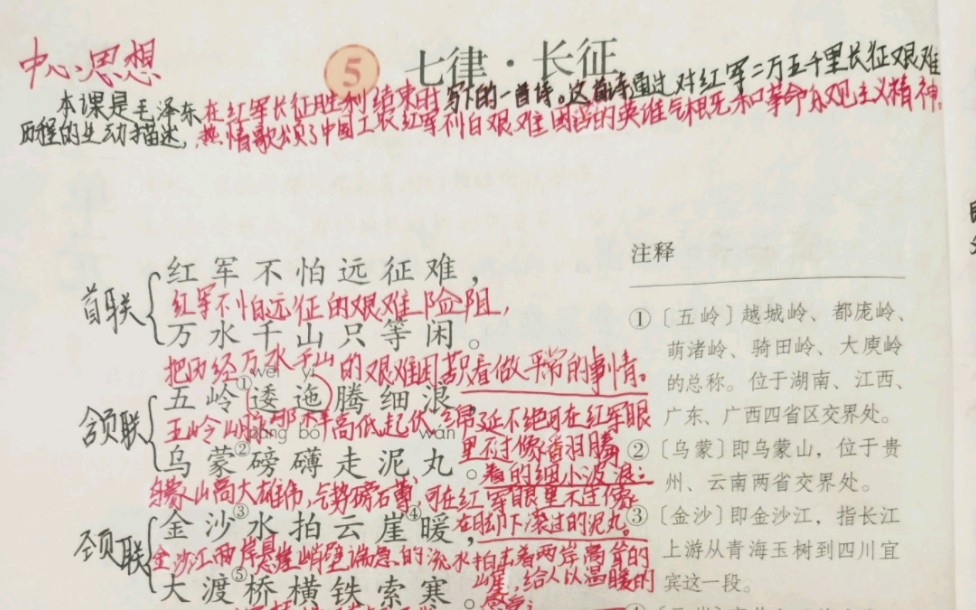 5 七律·长征
中心思想
本课是毛泽东在红军长征胜利结束时写下的一首诗。这首诗通过对红军二万五千里长征艰难
历程的生动描述,热情歌颂了中国工农红军不怕艰难困苦的英雄气概和革命乐观主义精神。
首联
红军不怕远征难,
红军不怕远征的艰难险阻,
万水千山只等闲。
把历经万水千山的艰难困苦只看做平常的事情。
wēi yí
颔联
五岭①逶迤腾细浪,
五岭山脉那样高低起伏,绵延不绝可在红军眼
里不过像翻腾
着的细小波浪;
páng bó wán
乌蒙②磅礴走泥丸。
乌蒙山高大雄伟,气势磅礴,可在红军眼里不过像
在脚下滚过的泥丸。
颈联
金沙③水拍云崖④暖,
金沙江两岸悬崖峭壁湍急的流水拍击着两岸高耸的
山崖,给人以温暖的
感觉;
大渡⑤桥横铁索寒。
注释
①〔五岭〕越城岭、都庞岭、
萌渚岭、骑田岭、大庾岭
的总称。位于湖南、江西、
广东、广西四省区交界处。
②〔乌蒙〕即乌蒙山,位于贵
州、云南两省交界处。
③〔金沙〕即金沙江,指长江
上游从青海玉树到四川宜
宾这一段。